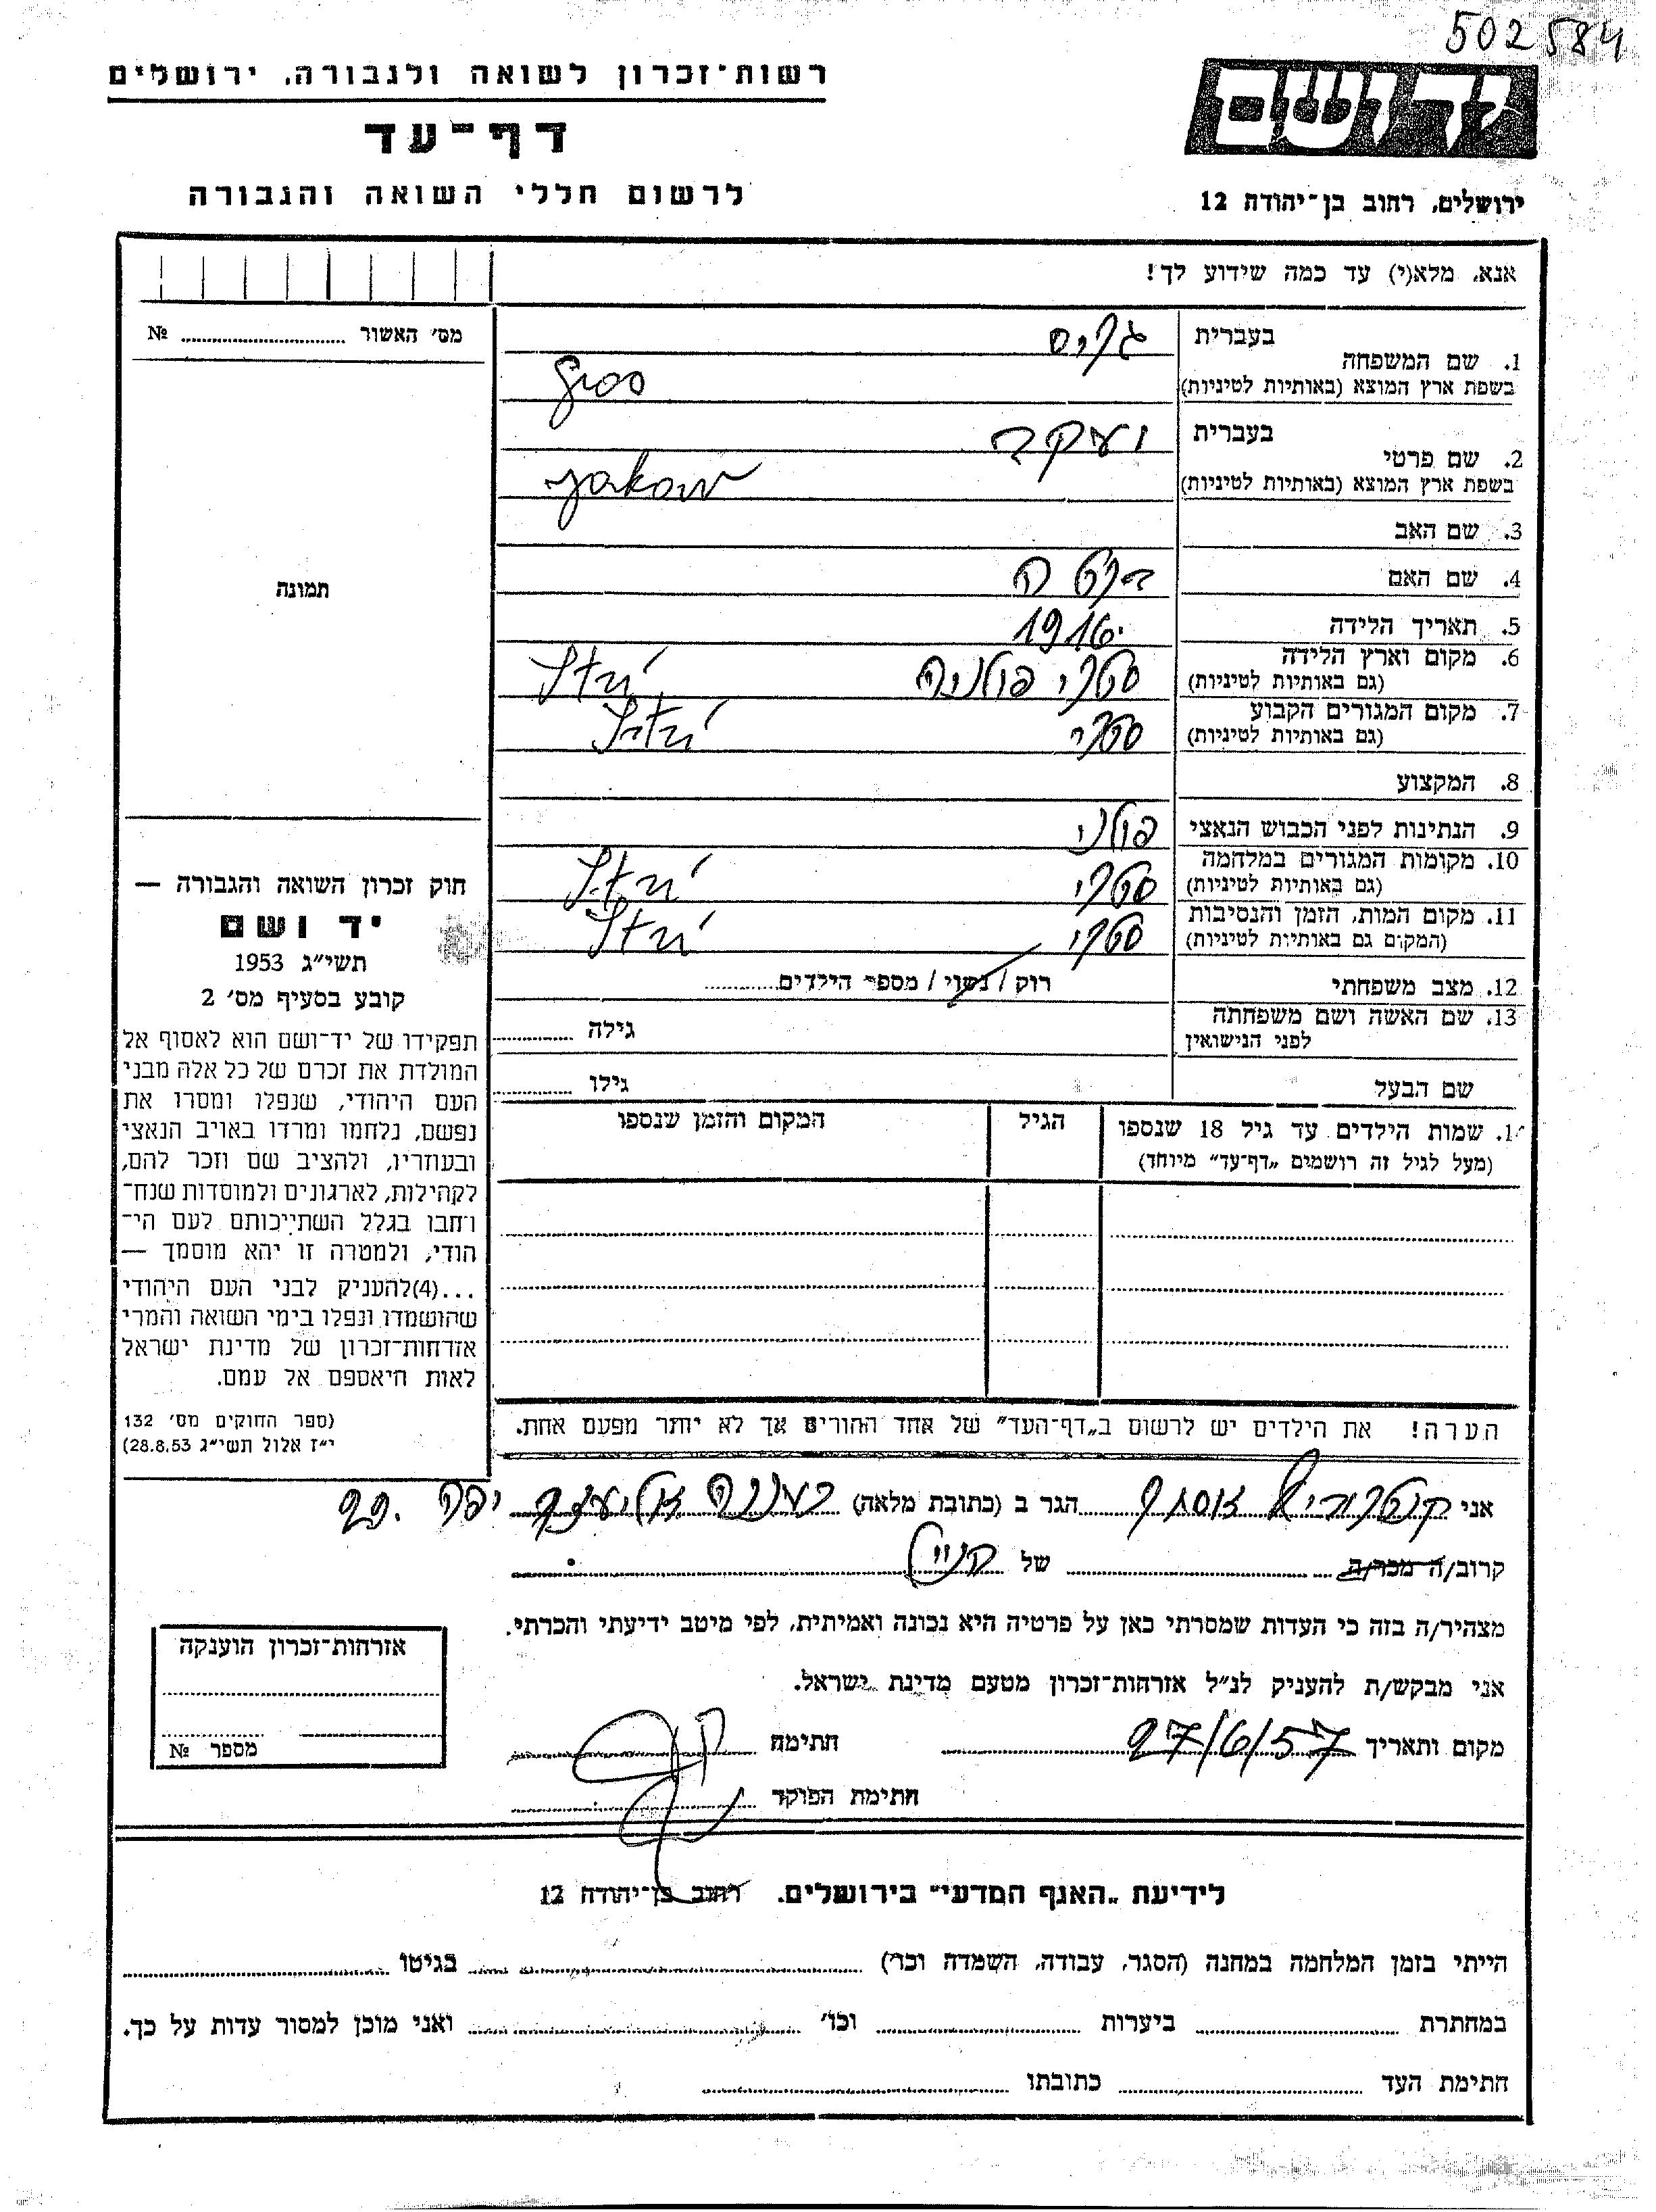 502584
רשות־זכרון לשואה ולגבורה, ירושלים
דף־עד
לרשום חללי השואה והגבורה
יד ושם
ירושלים, רחוב בן־יהודה 12
אנא, מלא(י) עד כמה שידוע לך!
מס׳ האשור № ........
תמונה
בעברית גרוס
1. שם המשפחה
בשפת ארץ המוצא (באותיות לטיניות) Gros
בעברית יעקב
2. שם פרטי
בשפת ארץ המוצא (באותיות לטיניות) Jakow
3. שם האב
4. שם האם
5. תאריך הלידה 1916
6. מקום וארץ הלידה סטרי פולניה
(גם באותיות לטיניות)
7. מקום המגורים הקבוע סטרי
(גם באותיות לטיניות)
8. המקצוע
9. הנתינות לפני הכבוש הנאצי פולני
10. מקומות המגורים במלחמה סטרי
(גם באותיות לטיניות)
11. מקום המות, הזמן והנסיבות סטרי
(המקום גם באותיות לטיניות)
12. מצב משפחתי רוק / נשוי / מספר הילדים ........
13. שם האשה ושם משפחתה גילה ........
לפני הנישואין
שם הבעל גילו ........
14. שמות הילדים עד גיל 18 שנספו הגיל המקום והזמן שנספו
(מעל לגיל זה רושמים „דף־עד” מיוחד)
הערה! את הילדים יש לרשום ב„דף־העד” של אחד ההורים אך לא יותר מפעם אחת.
חוק זכרון השואה והגבורה —
יד ושם
תשי״ג 1953
קובע בסעיף מס׳ 2
תפקידו של יד־ושם הוא לאסוף אל
המולדת את זכרם של כל אלה מבני
העם היהודי, שנפלו ומסרו את
נפשם, נלחמו ומרדו באויב הנאצי
ובעוזריו, ולהציב שם וזכר להם,
לקהילות, לארגונים ולמוסדות שנח־
רבו בגלל השתייכותם לעם הי־
הודי, ולמטרה זו יהא מוסמך —
...(4) להעניק לבני העם היהודי
שהושמדו ונפלו בימי השואה והמרי
אזרחות־זכרון של מדינת ישראל
לאות היאספם אל עמם.
(ספר החוקים מס׳ 132
י״ז אלול תשי״ג 28.8.53)
אני הגר ב (כתובת מלאה)
קרוב/ה מכר/ה של
מצהיר/ה בזה כי העדות שמסרתי כאן על פרטיה היא נכונה ואמיתית, לפי מיטב ידיעתי והכרתי.
אני מבקש/ת להעניק לנ״ל אזרחות־זכרון מטעם מדינת ישראל.
מקום ותאריך 27/6/57 חתימה
חתימת הפוקד
אזרחות־זכרון הוענקה
מספר №
לידיעת „האגף המדעי” בירושלים. רחוב בן־יהודה 12
הייתי בזמן המלחמה במחנה (הסגר, עבודה, השמדה וכו׳) ........ בגיטו ........
במחתרת ........ ביערות ........ וכו׳ ........ ואני מוכן למסור עדות על כך.
חתימת העד ........ כתובתו ........